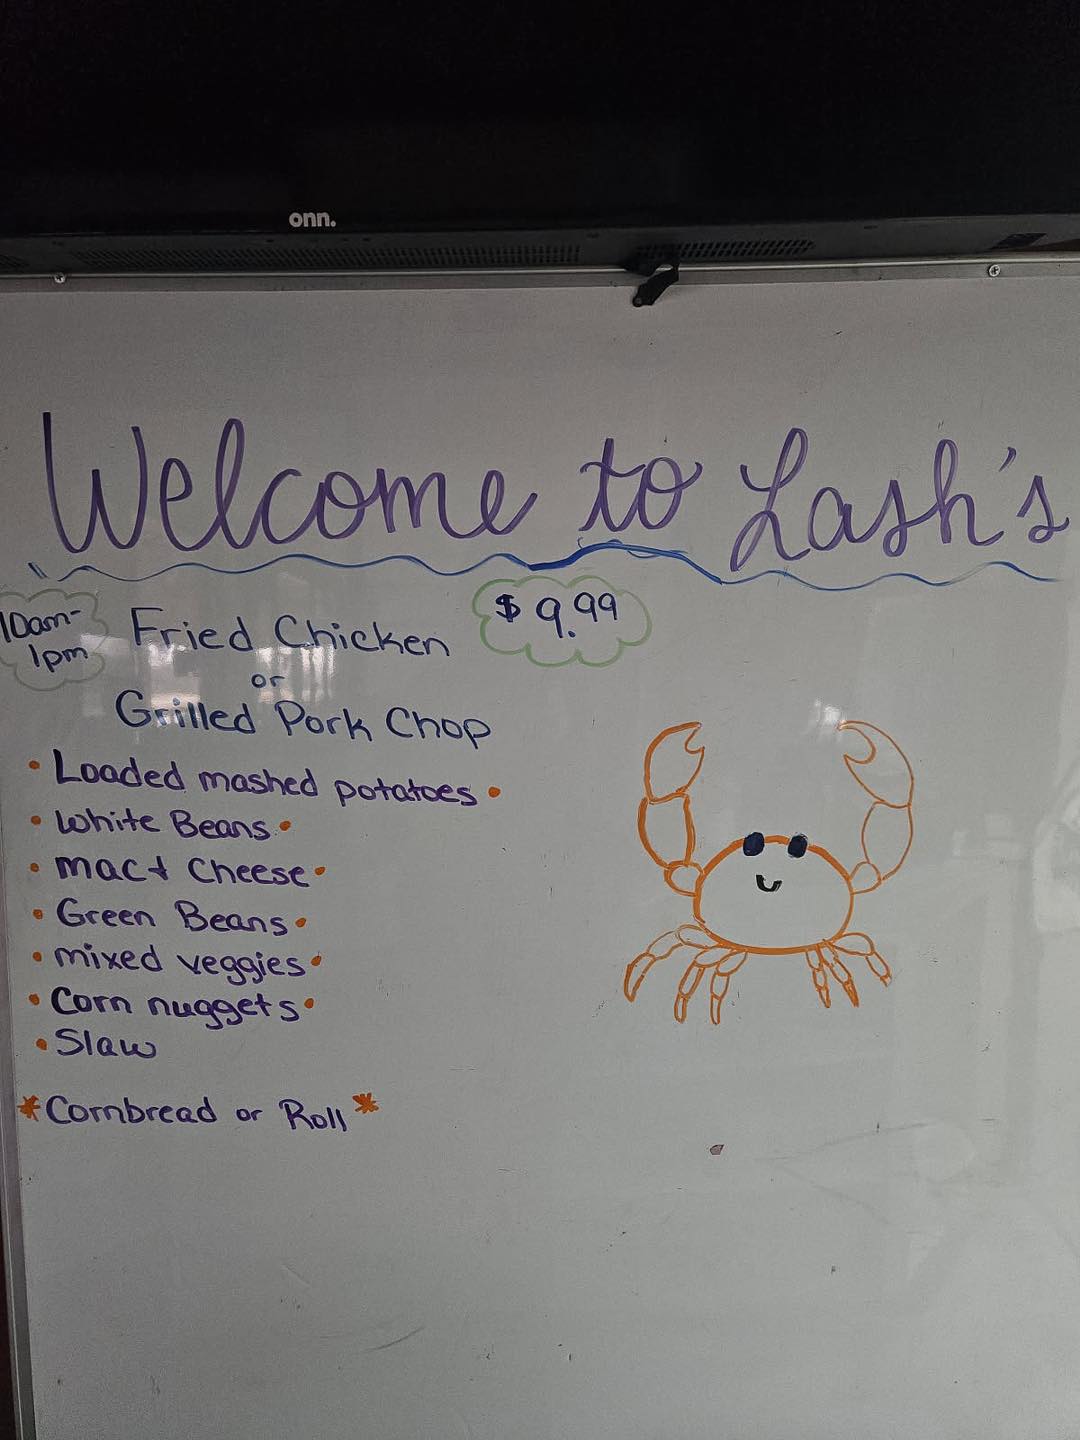 onn.
Welcome to Lash's
10am-
1pm
Fried Chicken
$9.99
or
Grilled Pork Chop
• Loaded mashed potatoes •
• White Beans •
• mac + Cheese •
• Green Beans •
• mixed veggies •
• Corn nuggets •
• Slaw
*Cornbread or Roll*